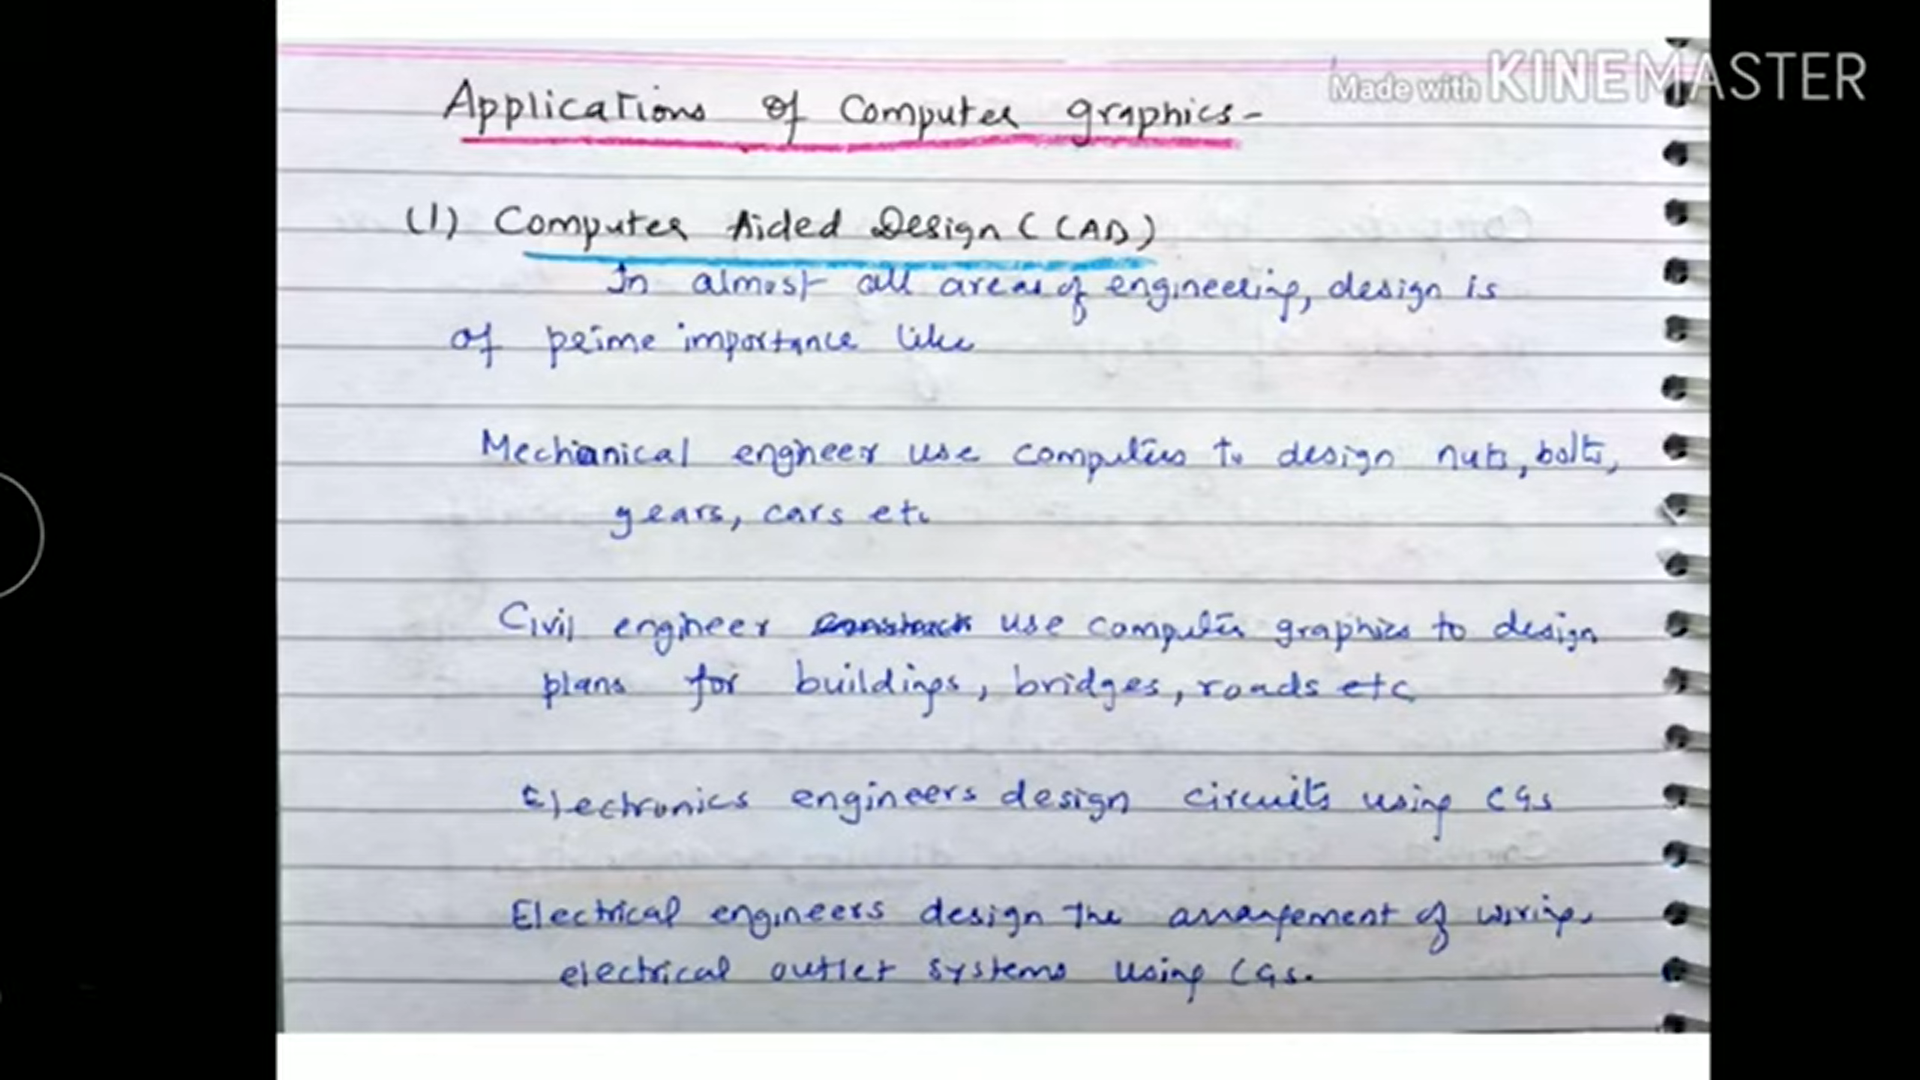 Made with KINEMASTER
Applications of Computer graphics-
(1) Computer Aided Design (CAD)
In almost all areas of engineering, design is
of prime importance like
Mechanical engineer use computers to design nuts, bolts,
gears, cars etc
Civil engineer construct use computer graphics to design
plans for buildings, bridges, roads etc
Electronics engineers design circuits using CGs
Electrical engineers design the arrangement of wiring,
electrical outlet systems using CGs.